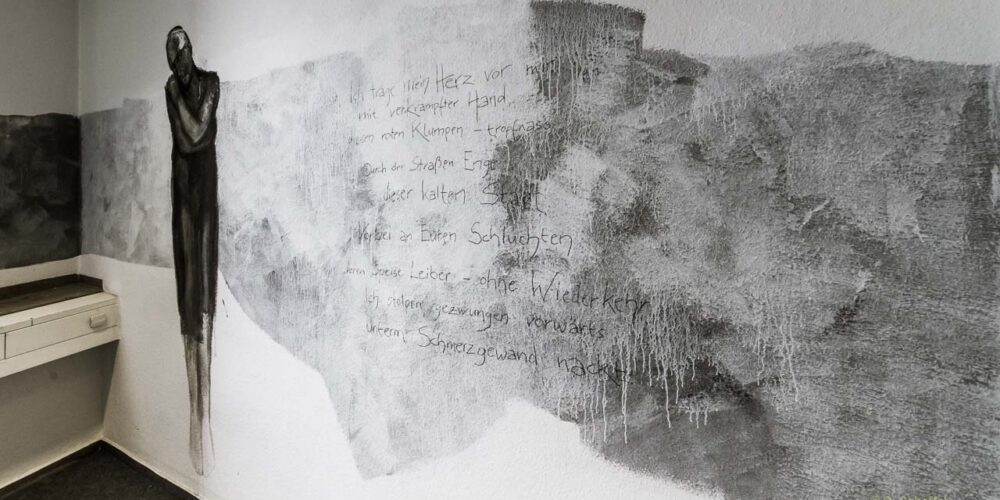 Ich trage mein Herz vor mir
mit verkrampfter Hand,
diesen roten Klumpen – tropfnass
Durch der Straßen Enge
dieser kalten Stadt
Vorbei an Euren Schluchten
deren Speise Leiber – ohne Wiederkehr
Ich stolpere gezwungen verwärts
unterm Schmerzgewand nackt